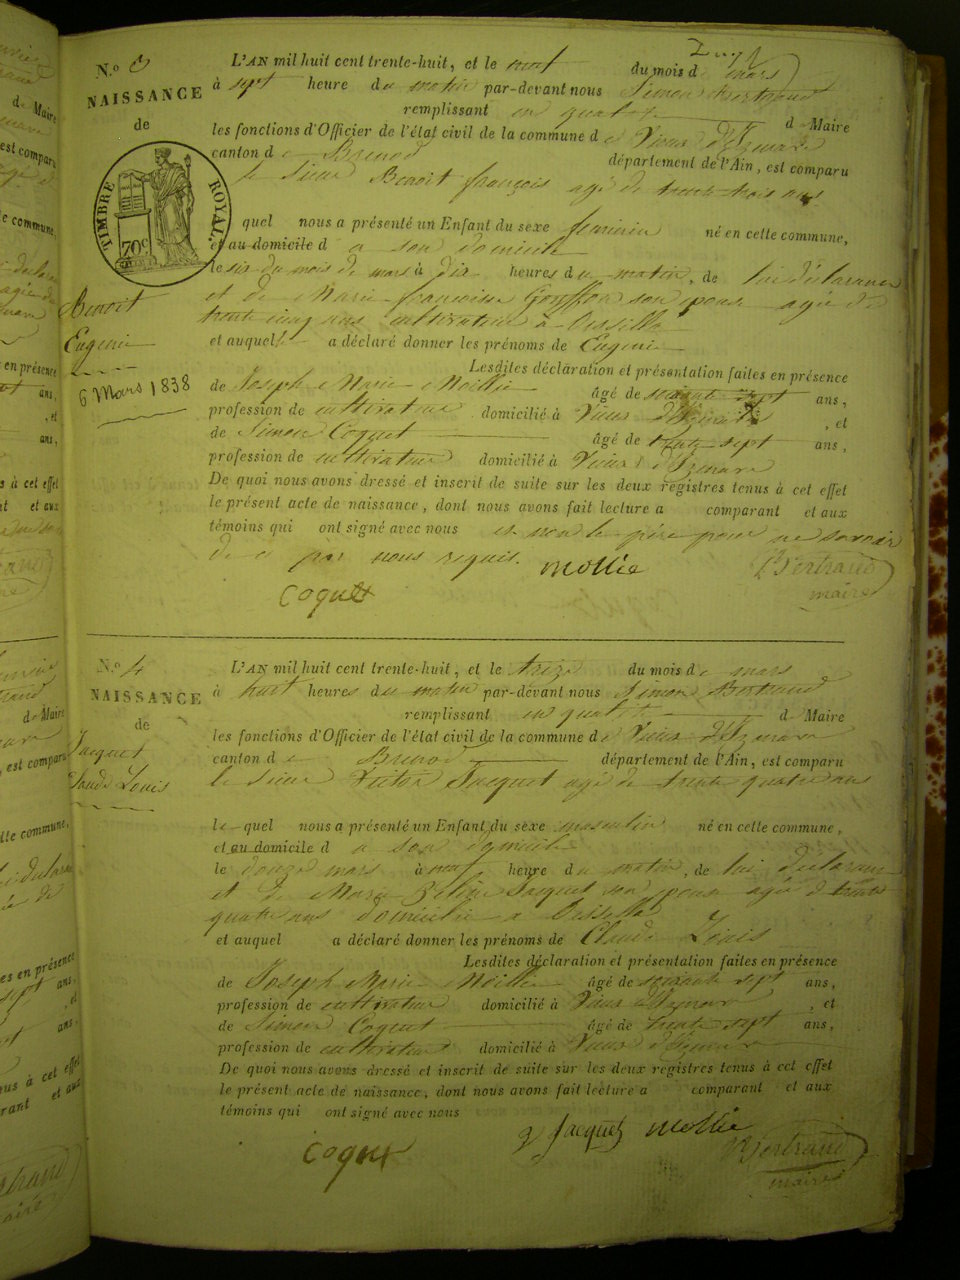 N.o 3
NAISSANCE
de
TIMBRE ROYAL
70 c
Benoit
Eugenie
6 Mars 1838
L'AN mil huit cent trente-huit, et le neuf du mois de mars
à sept heure du matin par-devant nous Simon Bertrand
remplissant en qualité d Maire
les fonctions d'Officier de l'état civil de la commune de Vieux d'Izenave
canton de Brenod département de l'Ain, est comparu
le sieur Benoit françois agé de trente trois ans
quel nous a présenté un Enfant du sexe feminin né en cette commune,
et au domicile d a son domicile
le six du mois de mars à dix heures du matin, de lui déclarant
et de Marie françoise Gouffon son epouse agée de
trente cinq ans cultivateur à Oisella
et auquel a déclaré donner les prénoms de Eugenie
Lesdites déclaration et présentation faites en présence
de Joseph Marie Mollie âgé de soixante sept ans,
profession de cultivateur domicilié à Vieux d'Izenave , et
de Simon Coquet âgé de trente sept ans,
profession de cultivateur domicilié à Vieux d'Izenave
De quoi nous avons dressé et inscrit de suite sur les deux registres tenus à cet effet
le présent acte de naissance, dont nous avons fait lecture a comparant et aux
témoins qui ont signé avec nous et non le père pour ne savoir
de ce par nous requis.
Mollie
Bertrand
maire
Coquet
N.o 4
NAISSANCE
de
Jacquet
Claude Louis
L'AN mil huit cent trente-huit, et le treize du mois de mars
à huit heures du matin par-devant nous Simon Bertrand
remplissant en qualité d Maire
les fonctions d'Officier de l'état civil de la commune de Vieux d'Izenave
canton de Brenod département de l'Ain, est comparu
le sieur Victor Jacquet agé de trente quatre ans
le quel nous a présenté un Enfant du sexe masculin né en cette commune,
et au domicile d a son domicile
le douze mars à neuf heure du matin, de lui déclarant
et de Marie Jacquet son epouse agée de trente
quatre ans domiciliée a Oisella
et auquel a déclaré donner les prénoms de Claude Louis
Lesdites déclaration et présentation faites en présence
de Joseph Marie Mollie âgé de soixante sept ans,
profession de cultivateur domicilié à Vieux d'Izenave , et
de Simon Coquet âgé de trente sept ans,
profession de cultivateur domicilié à Vieux d'Izenave
De quoi nous avons dressé et inscrit de suite sur les deux registres tenus à cet effet
le présent acte de naissance, dont nous avons fait lecture a comparant et aux
témoins qui ont signé avec nous
Jacquet Mollie
Bertrand
maire
Coquet